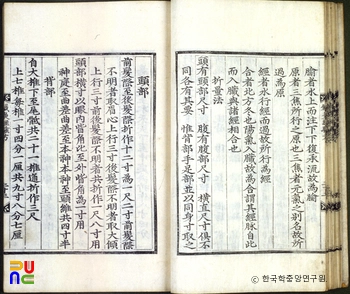 腧者水上而注下下復承流故為腧
原者三焦所行之原也三焦者元氣之別名故所
過為原
經者水行經而過故所行為經
合者北方冬也陽氣入臟故為合謂其經脉自此
而入臟與諸經相合也
折量法
頭有頭部尺寸 腹有腹部尺寸 橫直尺寸俱不
同各有其要 惟背部手足部並以同身寸取之
頭部
前髮際至後髮際折作十二寸為一尺二寸前髮際
不明者取眉心上行三寸後髮際不明者取大顀
上行三寸前後髮際不明者共折作一尺八寸用
頭部橫寸以眼內眥角比至外眥角為一寸用
神庭至曲差曲差至本神本神至頭維共四寸半
背部
自大椎下至尾骶共二十一椎通折作三尺
上七椎每椎一寸四分一厘共九寸八分七厘
PUNC
©한국학중앙연구원